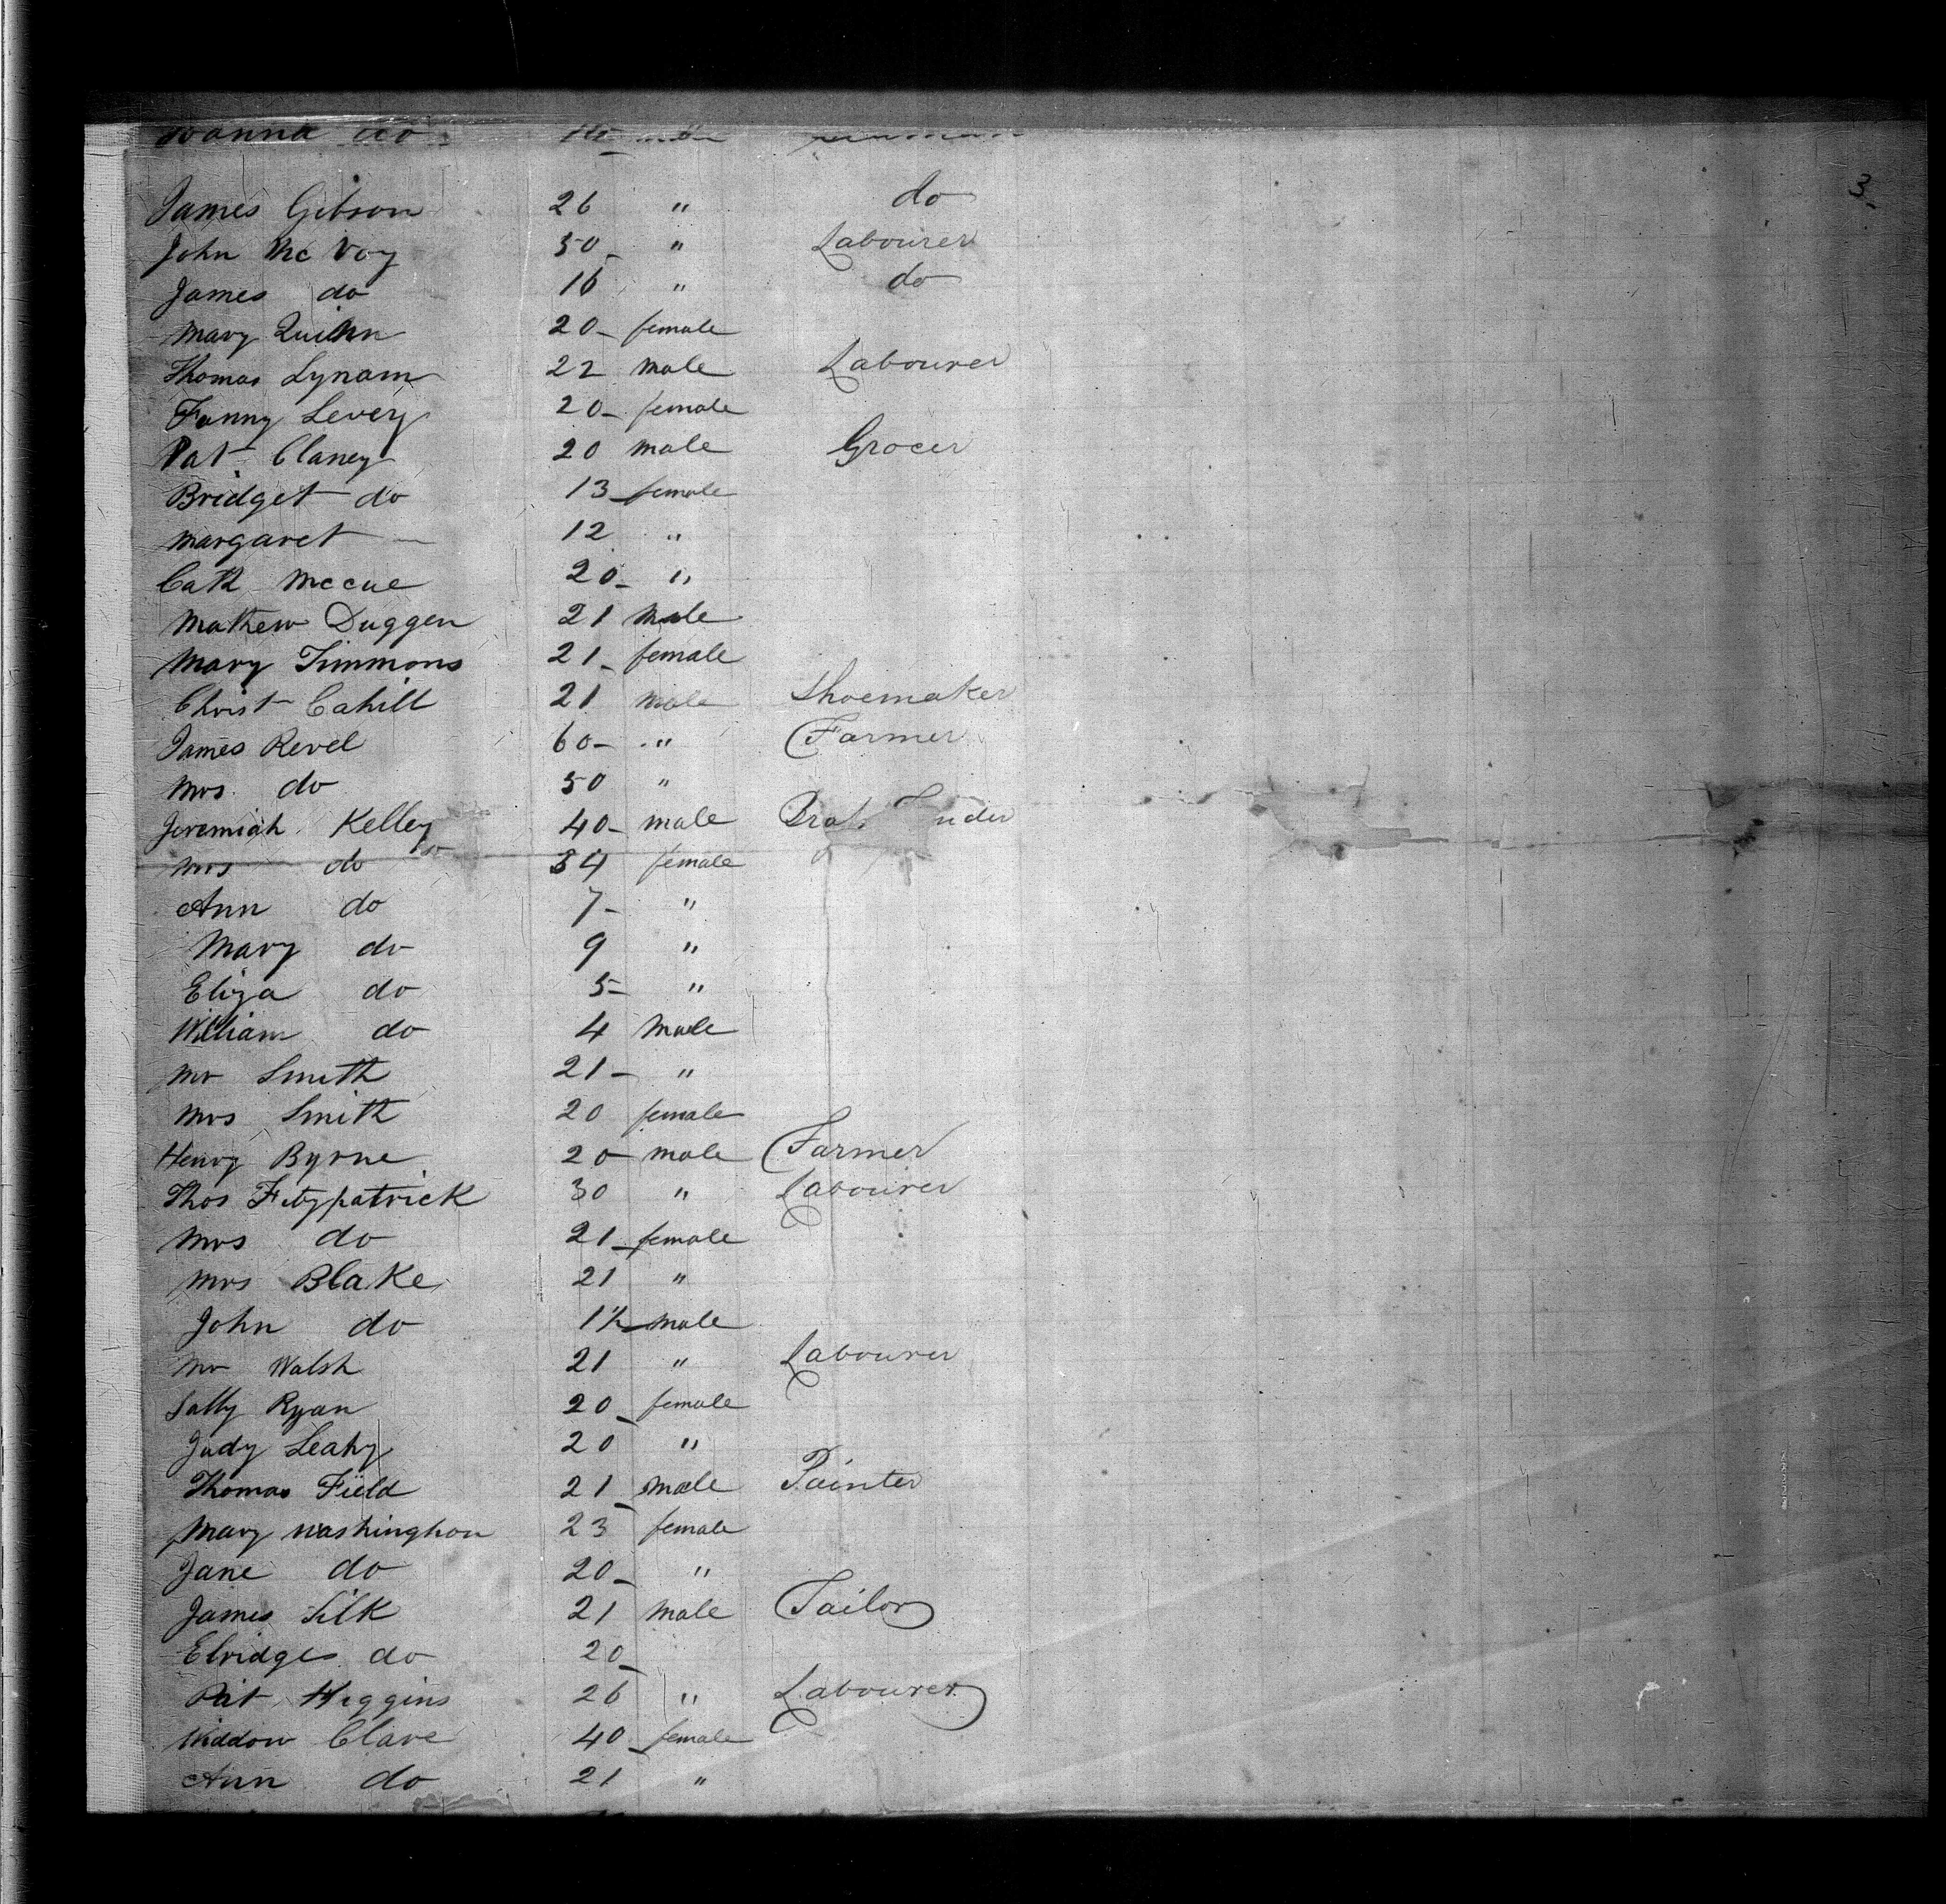 do
James Gibson 26 " do 3
John McVoy 50 " Labourer
James do 16 " do
Mary Quinn 20 female
Thomas Lynam 22 male Labourer
Fanny Levery 20 female
Pat Claney 20 male Grocer
Bridget do 13 female
Margaret — 12 "
Cath McCue 20 "
Mathew Duggen 21 male
Mary Timmons 21 female
Christ Cahill 21 male Shoemaker
James Revel 60 " Farmer
Mrs do 50 "
Jeremiah Kelley 40 male
Mrs do 34 female
Ann do 7 "
Mary do 9 "
Eliza do 5 "
William do 4 male
Mr Smith 21 "
Mrs Smith 20 female
Henry Byrne 20 male Farmer
Thos Fitzpatrick 30 " Labourer
Mrs do 21 female
Mrs Blake 21 "
John do 1½ male
Mr Walsh 21 " Labourer
Sally Ryan 20 female
Judy Leahy 20 "
Thomas Field 21 male Painter
Mary Washinghon 23 female
Jane do 20 "
James Silk 21 male Tailor
Elridges do 20
Pat Higgins 26 " Labourer
Widdow Clare 40 female
Ann do 21 "